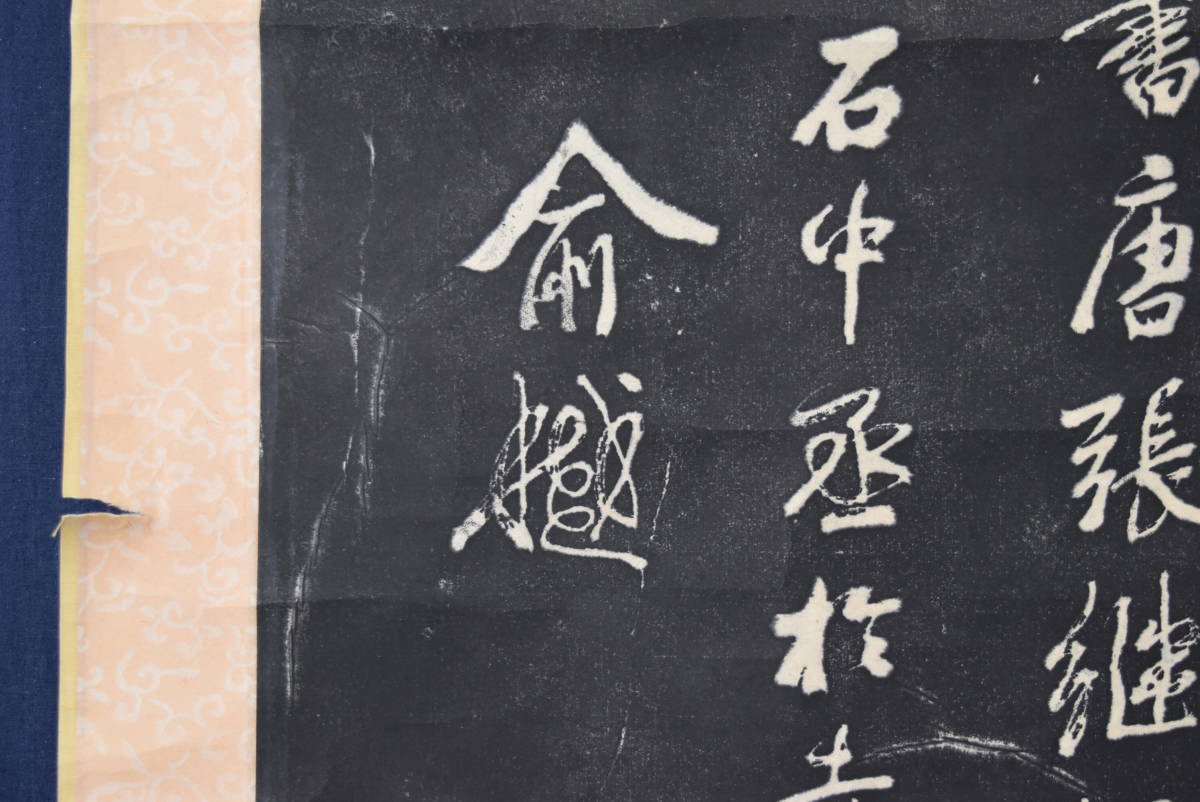 書唐張继
石中丞於古
俞樾